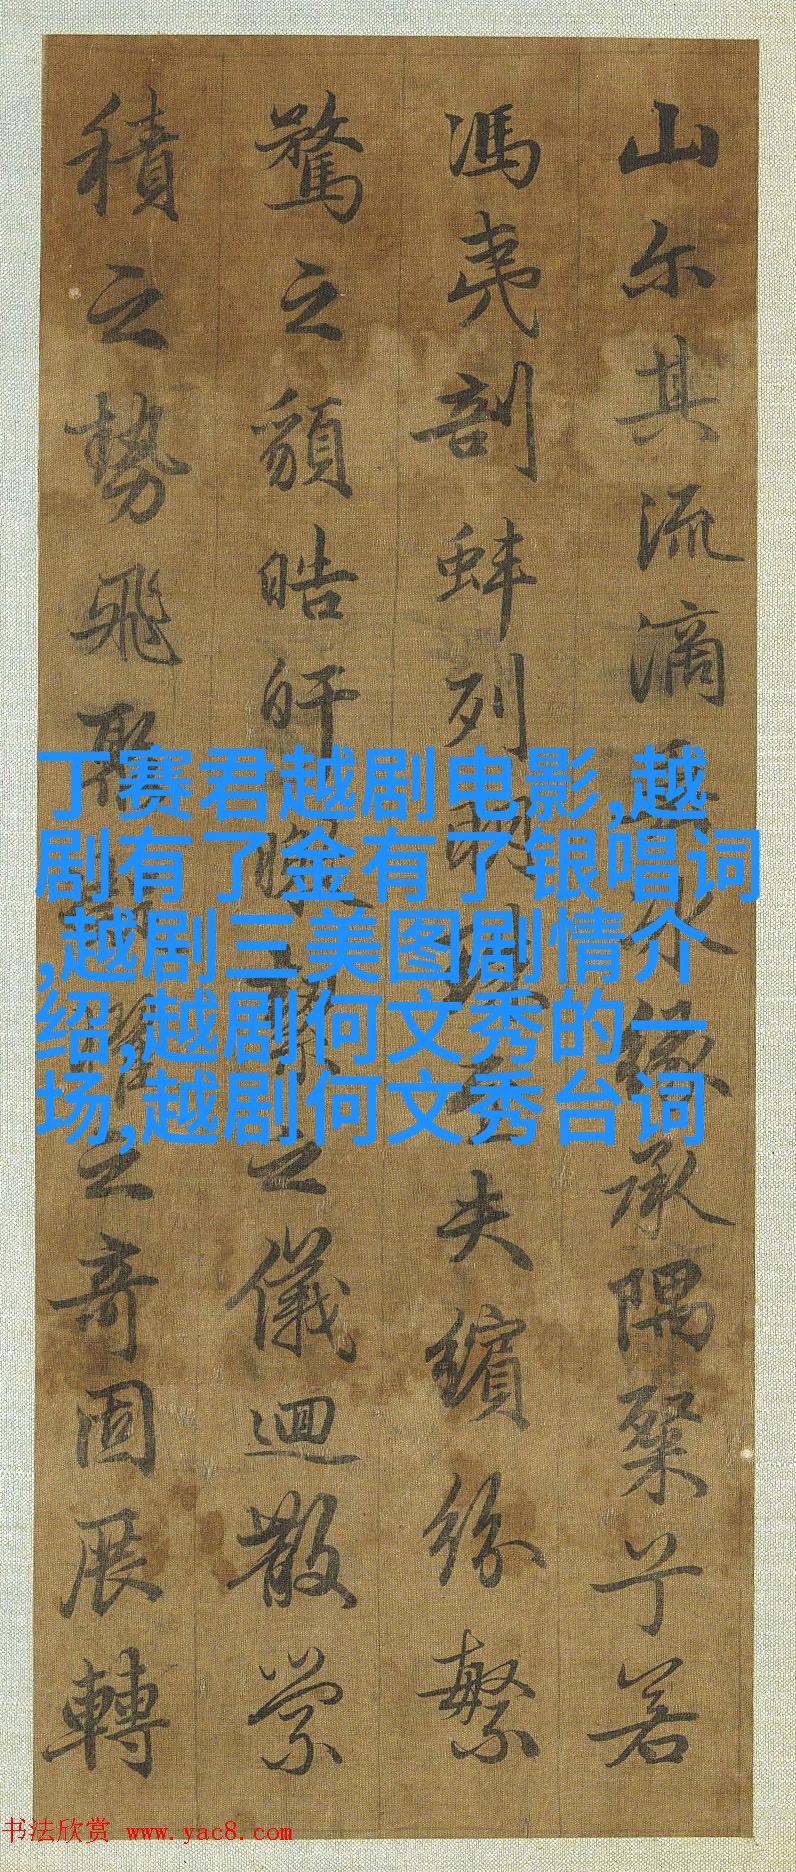 山尔其流滴冰緣承隅粲兮若
馮夷剖蚌列明珠至夫繽紛繁
騖之䫉皓皔潔之儀迴散縈
積之勢飛聚曜之奇固展轉
丁赛君越剧电影,越
剧有了金有了银唱词
,越剧三美图剧情介
绍,越剧何文秀的一
场,越剧何文秀台词
书法欣赏 www.yac8.com